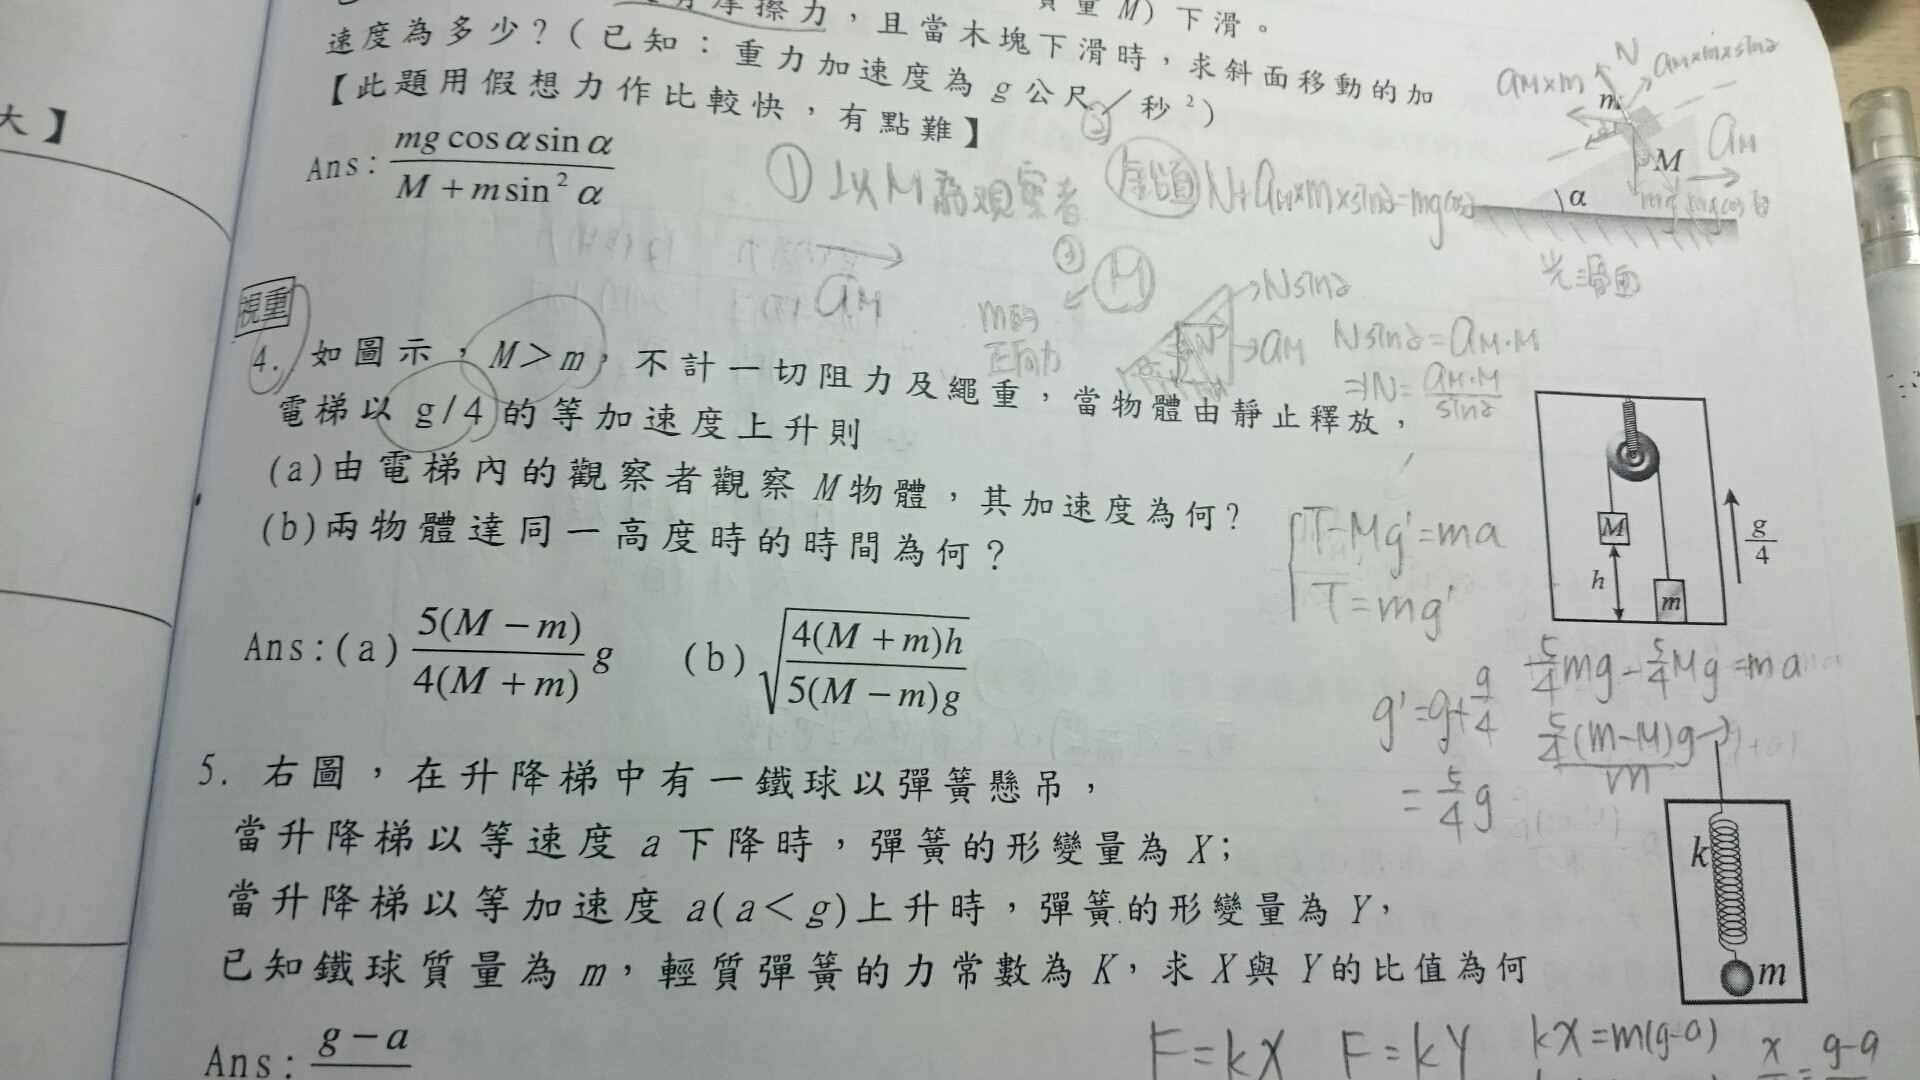 大】
摩擦力，且當木塊下滑時，求斜面移動的加
質量 M) 下滑。
速度為多少？(已知：重力加速度為 g 公尺／秒²)
【此題用假想力作比較快，有點難】
Ans: mg cos α sin α / M + m sin² α
① 以M為觀察者
②
N + aM×m×sinα = mg cosα
N
aM×m×sinα
aM×m
m
M
aM
α
光滑面
aM
③ M
m的
正向力
N sinα
aM
N sinα = aM·M
⇒ N = aM·M / sinα
視重
4. 如圖示，M＞m，不計一切阻力及繩重，當物體由靜止釋放，
電梯以 g/4 的等加速度上升則
(a)由電梯內的觀察者觀察 M 物體，其加速度為何？
(b)兩物體達同一高度時的時間為何？
Ans:(a) 5(M − m) / 4(M + m) g (b) √ 4(M + m)h / 5(M − m)g
M
h
m
g/4
T − Mg' = ma
T = mg'
g' = g + g/4
= 5/4 g
5/4 mg − 5/4 Mg = ma
5/4 (m−M)g
m
5. 右圖，在升降梯中有一鐵球以彈簧懸吊，
當升降梯以等速度 a 下降時，彈簧的形變量為 X；
當升降梯以等加速度 a(a＜g)上升時，彈簧的形變量為 Y，
已知鐵球質量為 m，輕質彈簧的力常數為 K，求 X 與 Y 的比值為何
k
m
Ans: g − a
F = kX F = kY kX = m(g−a)
X = g−a